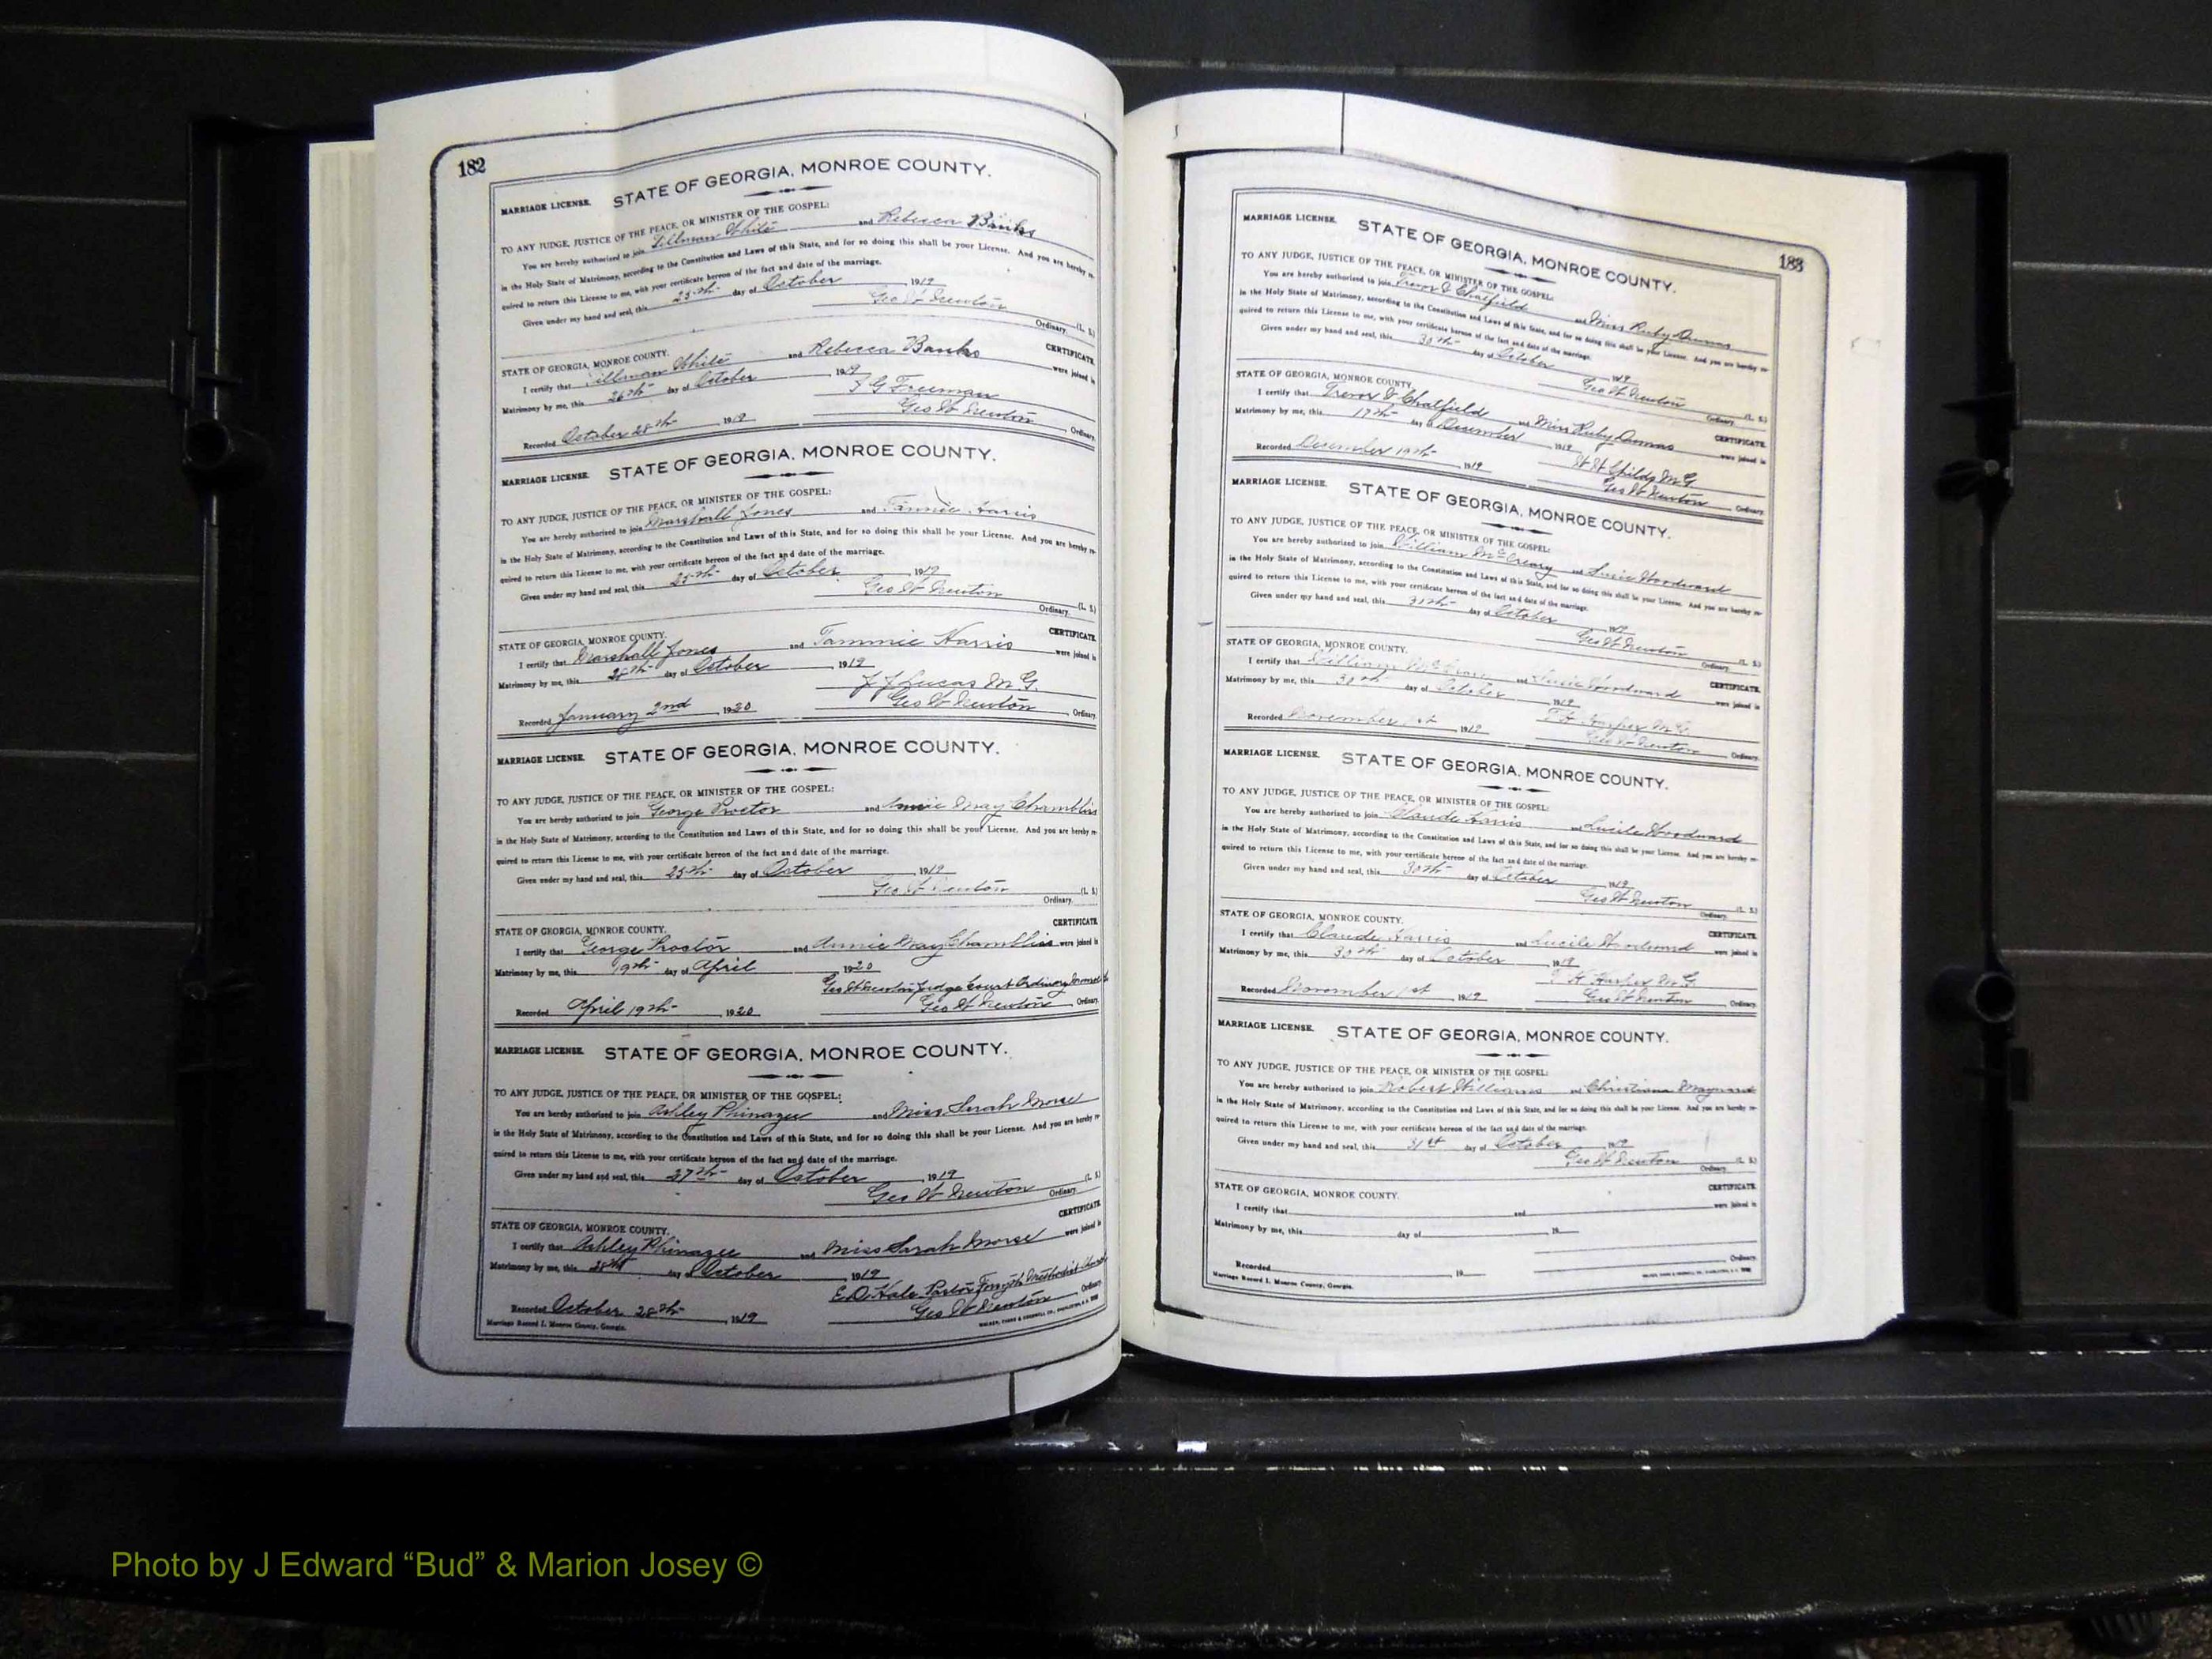 182
STATE OF GEORGIA, MONROE COUNTY.
MARRIAGE LICENSE.
TO ANY JUDGE, JUSTICE OF THE PEACE, OR MINISTER OF THE GOSPEL:
You are hereby authorized to join Tillman White and Rebecca Banks
in the Holy State of Matrimony, according to the Constitution and Laws of this State, and for so doing this shall be your License. And you are hereby re-
quired to return this License to me, with your certificate hereon of the fact and date of the marriage.
Given under my hand and seal, this 25th day of October 1919
Geo W Newton (L. S.)
Ordinary.
STATE OF GEORGIA, MONROE COUNTY. CERTIFICATE
I certify that Tillman White and Rebecca Banks were joined in
Matrimony by me, this 26th day of October, 1919
Freeman
Recorded October 28th, 1919 Geo W Newton Ordinary.
MARRIAGE LICENSE. STATE OF GEORGIA, MONROE COUNTY.
TO ANY JUDGE, JUSTICE OF THE PEACE, OR MINISTER OF THE GOSPEL:
You are hereby authorized to join Marshall Jones and Harris
in the Holy State of Matrimony, according to the Constitution and Laws of this State, and for so doing this shall be your License. And you are hereby re-
quired to return this License to me, with your certificate hereon of the fact and date of the marriage.
Given under my hand and seal, this 25th day of October, 1919
Geo W Newton (L. S.)
Ordinary.
STATE OF GEORGIA, MONROE COUNTY. CERTIFICATE
I certify that Marshall Jones and Tammie Harris were joined in
Matrimony by me, this 28th day of October, 1919
J J Lucas M.G.
Recorded January 2nd, 1920 Geo W Newton Ordinary.
MARRIAGE LICENSE. STATE OF GEORGIA, MONROE COUNTY.
TO ANY JUDGE, JUSTICE OF THE PEACE, OR MINISTER OF THE GOSPEL:
You are hereby authorized to join George Proctor and Annie May Chambliss
in the Holy State of Matrimony, according to the Constitution and Laws of this State, and for so doing this shall be your License. And you are hereby re-
quired to return this License to me, with your certificate hereon of the fact and date of the marriage.
Given under my hand and seal, this 25th day of October, 1919
Geo W Newton (L. S.)
Ordinary.
CERTIFICATE
STATE OF GEORGIA, MONROE COUNTY.
I certify that George Proctor and Annie May Chambliss were joined in
Matrimony by me, this 19th day of April 1920
Geo W Newton Judge Court Ordinary Monroe
Recorded April 19th, 1920 Geo W Newton Ordinary.
MARRIAGE LICENSE. STATE OF GEORGIA, MONROE COUNTY.
TO ANY JUDGE, JUSTICE OF THE PEACE, OR MINISTER OF THE GOSPEL:
You are hereby authorized to join Ashley Phinazee and Miss Sarah Morse
in the Holy State of Matrimony, according to the Constitution and Laws of this State, and for so doing this shall be your License. And you are hereby re-
quired to return this License to me, with your certificate hereon of the fact and date of the marriage.
Given under my hand and seal, this 27th day of October, 1919
Geo W Newton (L. S.)
Ordinary.
CERTIFICATE
STATE OF GEORGIA, MONROE COUNTY.
I certify that Ashley Phinazee and Miss Sarah Morse were joined in
Matrimony by me, this 28th day of October, 1919
E. D. Hale Pastor Forsyth Methodist Church
Recorded October 28th, 1919 Geo W Newton Ordinary.
Marriage Record I, Monroe County, Georgia.
183
MARRIAGE LICENSE. STATE OF GEORGIA, MONROE COUNTY.
TO ANY JUDGE, JUSTICE OF THE PEACE, OR MINISTER OF THE GOSPEL:
You are hereby authorized to join Chatfield and Miss Ruby Dumas
in the Holy State of Matrimony, according to the Constitution and Laws of this State, and for so doing this shall be your License. And you are hereby re-
quired to return this License to me, with your certificate hereon of the fact and date of the marriage.
Given under my hand and seal, this 30th day of October 1919
Geo W Newton (L. S.)
Ordinary.
STATE OF GEORGIA, MONROE COUNTY. CERTIFICATE
I certify that Chatfield and Miss Ruby Dumas were joined in
Matrimony by me, this 17th day of December, 1919
Childs M.G.
Recorded December 19th, 1919 Geo W Newton Ordinary.
MARRIAGE LICENSE. STATE OF GEORGIA, MONROE COUNTY.
TO ANY JUDGE, JUSTICE OF THE PEACE, OR MINISTER OF THE GOSPEL:
You are hereby authorized to join William McCreary and Woodward
in the Holy State of Matrimony, according to the Constitution and Laws of this State, and for so doing this shall be your License. And you are hereby re-
quired to return this License to me, with your certificate hereon of the fact and date of the marriage.
Given under my hand and seal, this day of October 1919
Geo W Newton (L. S.)
Ordinary.
STATE OF GEORGIA, MONROE COUNTY. CERTIFICATE
I certify that William and Woodward were joined in
Matrimony by me, this 30th day of October 1919
Harper M.G.
Recorded November 1st, 1919 Geo W Newton Ordinary.
MARRIAGE LICENSE. STATE OF GEORGIA, MONROE COUNTY.
TO ANY JUDGE, JUSTICE OF THE PEACE, OR MINISTER OF THE GOSPEL:
You are hereby authorized to join Claude Harris and Lucile Woodward
in the Holy State of Matrimony, according to the Constitution and Laws of this State, and for so doing this shall be your License. And you are hereby re-
quired to return this License to me, with your certificate hereon of the fact and date of the marriage.
Given under my hand and seal, this 30th day of October 1919
Geo W Newton (L. S.)
Ordinary.
STATE OF GEORGIA, MONROE COUNTY. CERTIFICATE
I certify that Claude Harris and Lucile Woodward were joined in
Matrimony by me, this 30th day of October 1919
Harper M.G.
Recorded November 1st, 1919 Geo W Newton Ordinary.
MARRIAGE LICENSE. STATE OF GEORGIA, MONROE COUNTY.
TO ANY JUDGE, JUSTICE OF THE PEACE, OR MINISTER OF THE GOSPEL:
You are hereby authorized to join Robert Williams and Christiana Maynard
in the Holy State of Matrimony, according to the Constitution and Laws of this State, and for so doing this shall be your License. And you are hereby re-
quired to return this License to me, with your certificate hereon of the fact and date of the marriage.
Given under my hand and seal, this 31st day of October 1919
Geo W Newton (L. S.)
Ordinary.
STATE OF GEORGIA, MONROE COUNTY. CERTIFICATE
I certify that and were joined in
Matrimony by me, this day of , 19
Recorded , 19 Ordinary.
Marriage Record I, Monroe County, Georgia.
Photo by J Edward “Bud” & Marion Josey ©